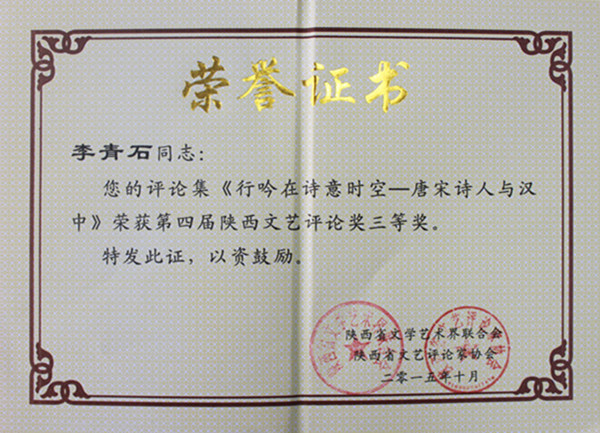 荣誉证书
李青石同志：
您的评论集《行吟在诗意时空—唐宋诗人与汉
中》荣获第四届陕西文艺评论奖三等奖。
特发此证，以资鼓励。
陕西省文学艺术界联合会
陕西省文艺评论家协会
二零一五年十月